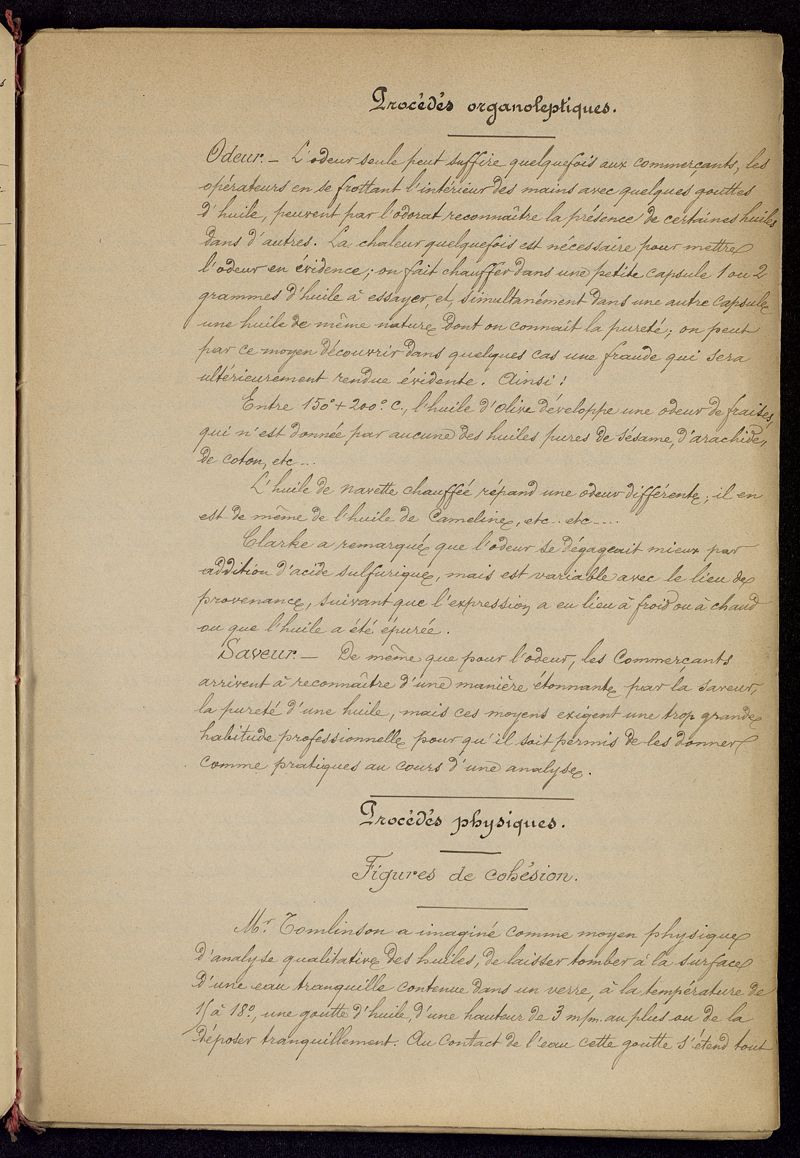 Procédés organoleptiques.
Odeur. — L'odeur seule peut suffire quelquefois aux commerçants, les
opérateurs en se frottant l'intérieur des mains avec quelques gouttes
d'huile, peuvent par l'odorat reconnaître la présence de certaines huiles
dans d'autres. La chaleur quelquefois est nécessaire pour mettre
l'odeur en évidence; on fait chauffer dans une petite capsule 1 ou 2
grammes d'huile à essayer, et, simultanément dans une autre capsule
une huile de même nature dont on connait la pureté; on peut
par ce moyen découvrir dans quelques cas une fraude qui sera
ultérieurement rendue évidente. Ainsi:
Entre 150° + 200° C, l'huile d'olive développe une odeur de fraises,
qui n'est donnée par aucune des huiles pures de sésame, d'arachide,
de coton, etc...
L'huile de navette chauffée répand une odeur différente; il en
est de même de l'huile de Cameline, etc.. etc....
Clarke a remarqué que l'odeur se dégageait mieux par
addition d'acide sulfurique, mais est variable avec le lieu de
provenance, suivant que l'expression a eu lieu à froid ou à chaud
ou que l'huile a été épurée.
Saveur. — De même que pour l'odeur, les Commerçants
arrivent à reconnaître d'une manière étonnante par la saveur,
la pureté d'une huile, mais ces moyens exigent une trop grande
habitude professionnelle pour qu'il soit permis de les donner
comme pratiques au cours d'une analyse.
Procédés physiques.
Figures de cohésion.
Mr. Tomlinson a imaginé comme moyen physique
d'analyse qualitative des huiles, de laisser tomber à la surface
d'une eau tranquille contenue dans un verre, à la température de
15 à 18°, une goutte d'huile, d'une hauteur de 3 m/m. au plus ou de la
déposer tranquillement. Au contact de l'eau cette goutte s'étend tout